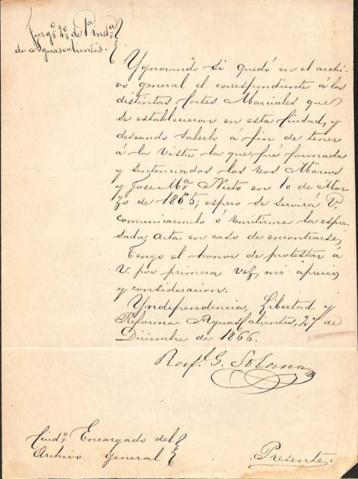 Juzgº 2º de 1ª Instª
de Aguascalientes.
Ygnorando si quedó en el archi-
vo general el correspondiente á las
distintas Cortes Marciales que
se establecieron en esta Ciudad, y
deseando saberlo á fin de tener
á la vista la que fué formada
y sentenciados los reos Marcos
y Jose Mª Nieto en 10 de Mar-
zo de 1865; espero se servirá V.
comunicarmelo ó remitirme la espre-
sada acta en caso de encontrarse,
Tengo el honor de protestar á
V. por primera vez, mi aprecio
y consideracion.
Yndependencia, Libertad y
Reforma Aguascalientes, 27 de
Diciembre de 1866.
Raf. G. Solana
Ciudº Encargado del
Archivo General
Presente.